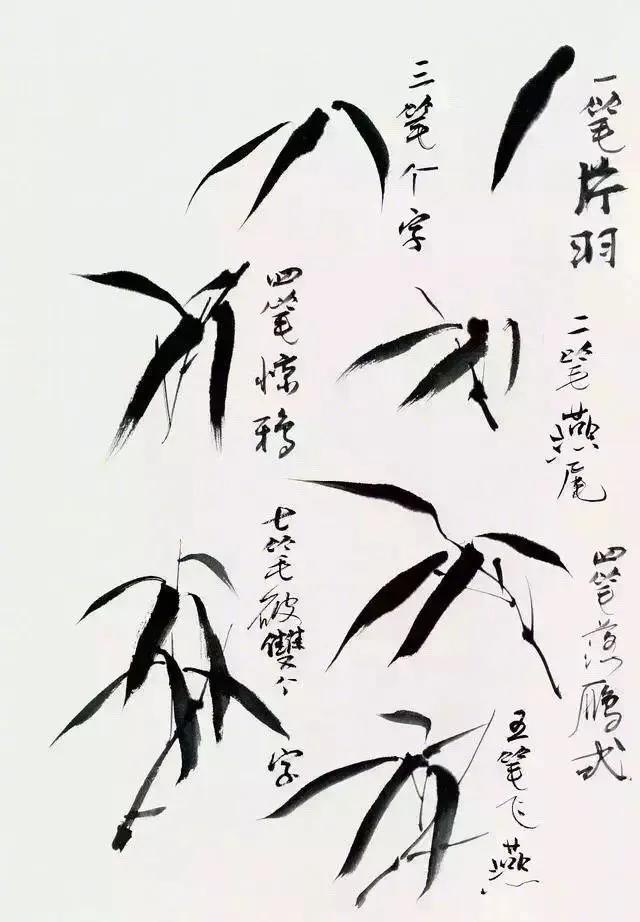 一笔片羽
二笔燕尾
三笔个字
四笔落鹏式
四笔惊鸦
五笔飞燕
七笔破雙个字